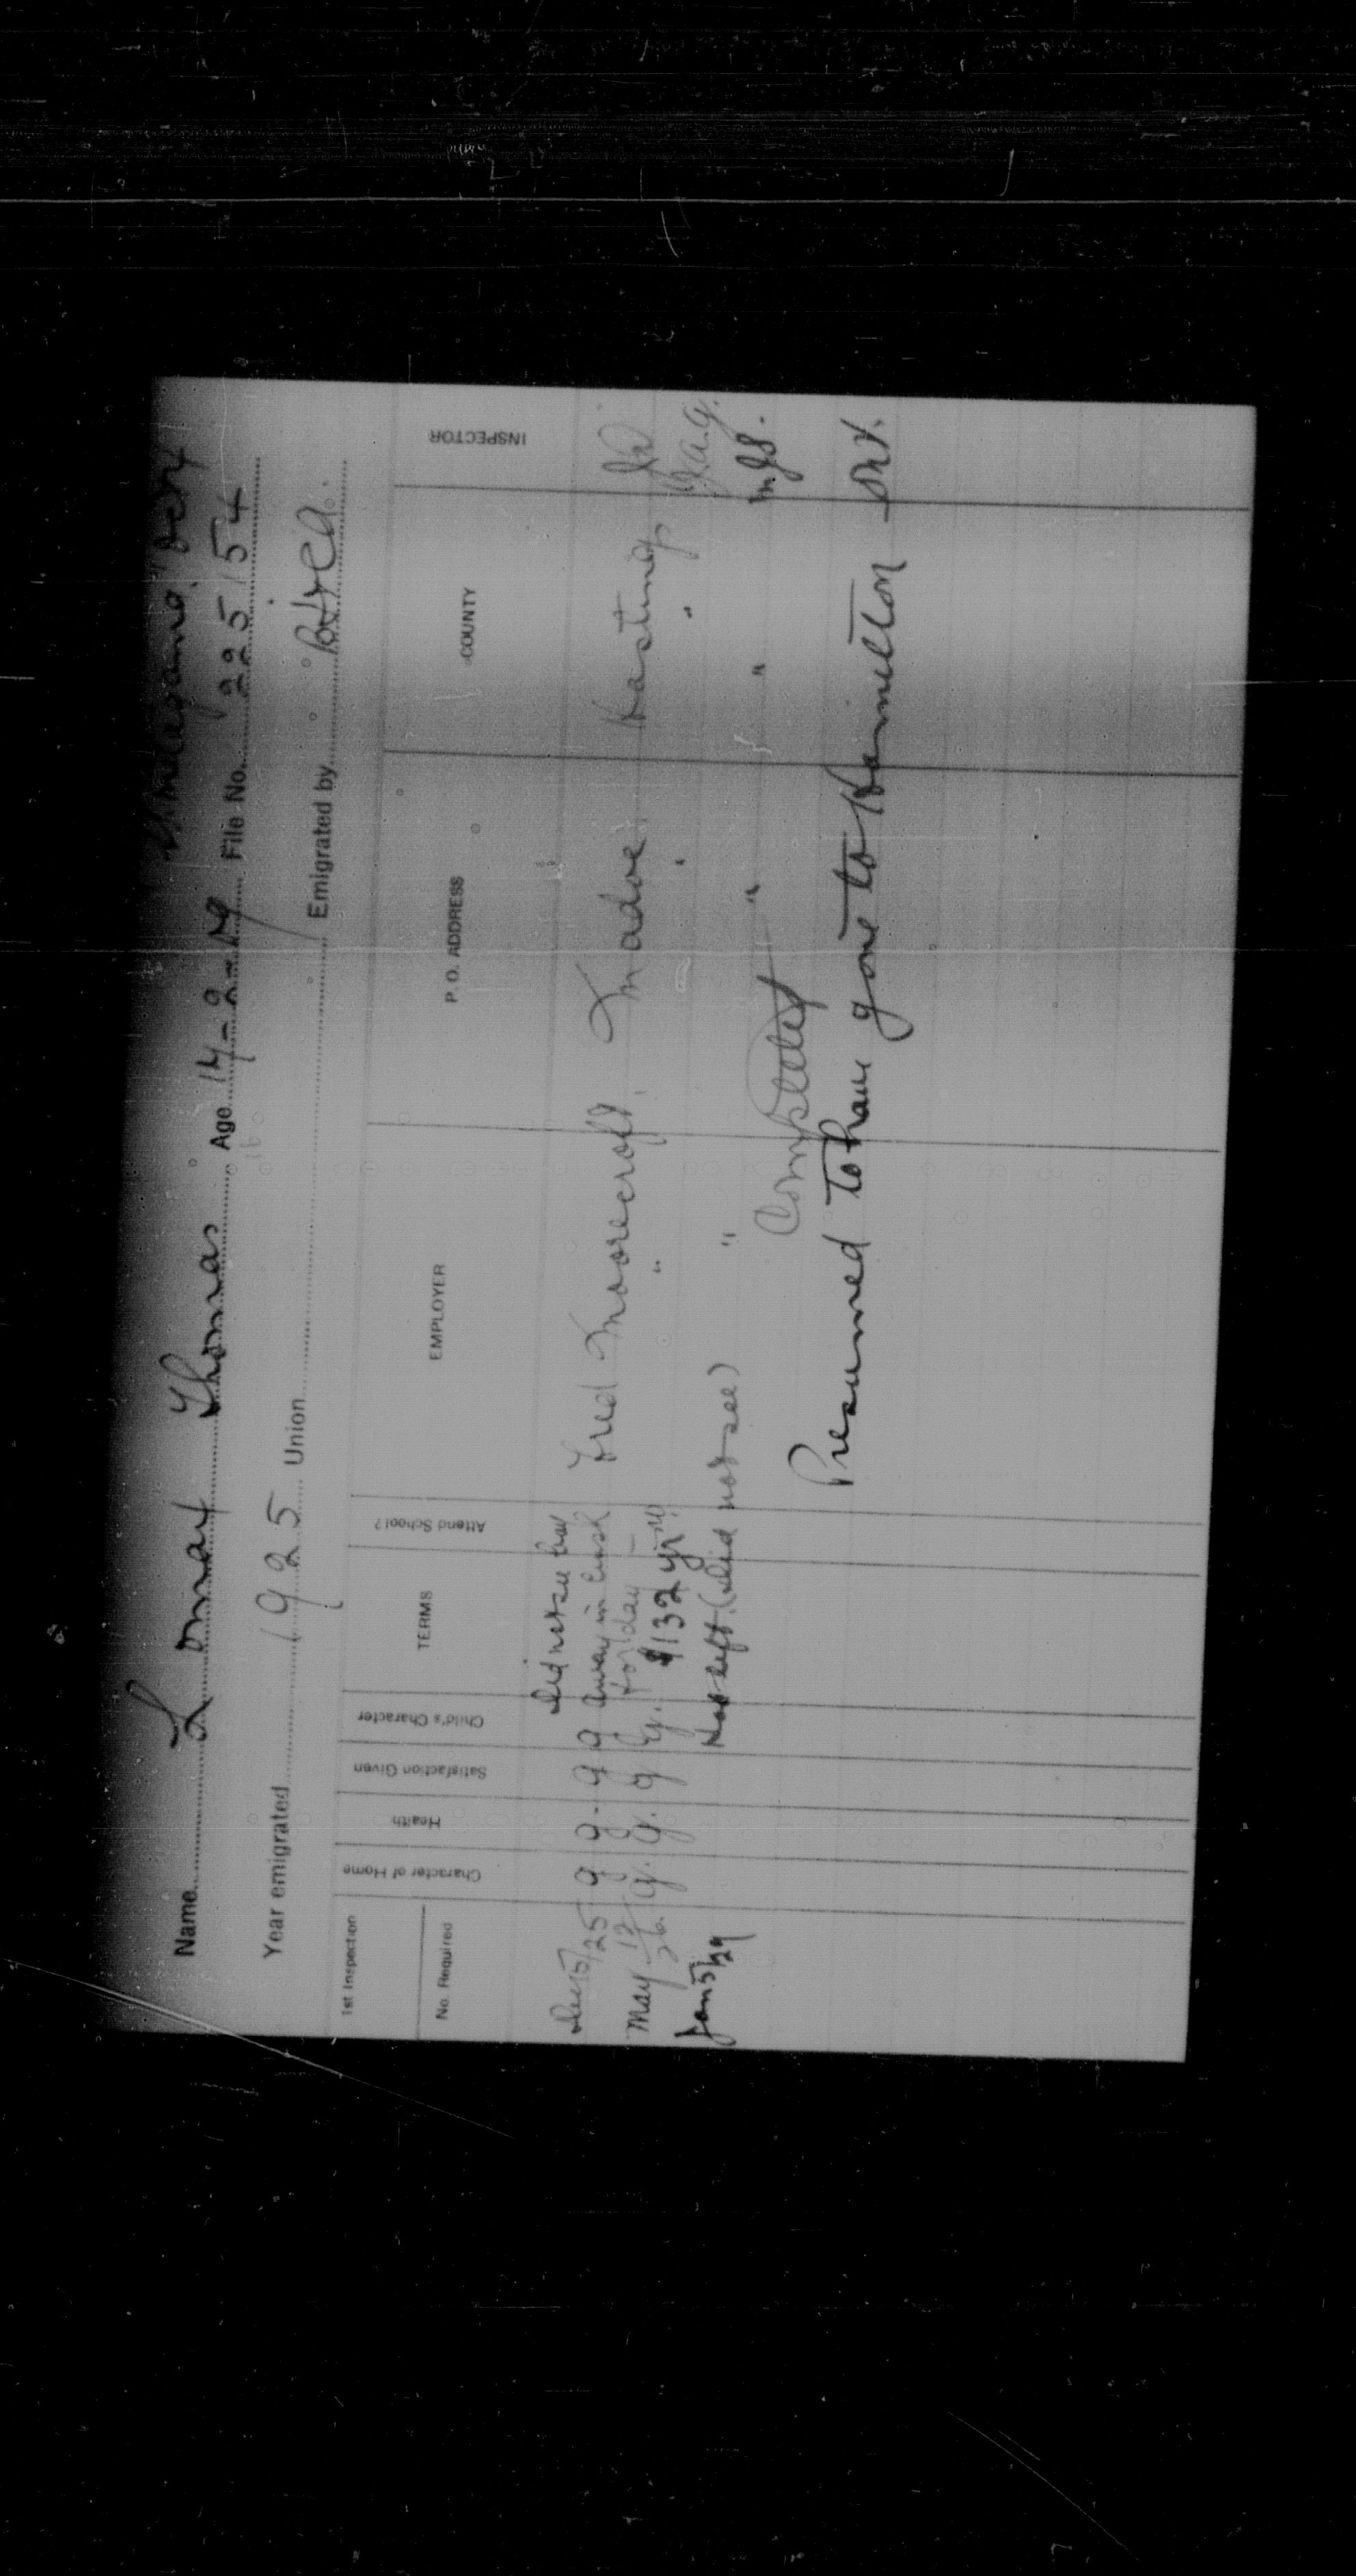 Name Lomax Thomas Age 14-9-29 File No. 225154
16
Year emigrated 1925 Union Emigrated by
1st Inspection
No. Required
Character of Home Health Satisfaction Given Child's Character TERMS Attend School? EMPLOYER P. O. ADDRESS COUNTY INSPECTOR
Did not see boy
Dec 15/25 g g. g g away in bush Fred Moorecroft, Madoc Hastings
for day
May 12/26. g. g. g g. $132 yr. " " "
Jan 5/29 Has left (did not see) " " " MJS.
Completed
Presumed to have gone to Hamilton Ont.